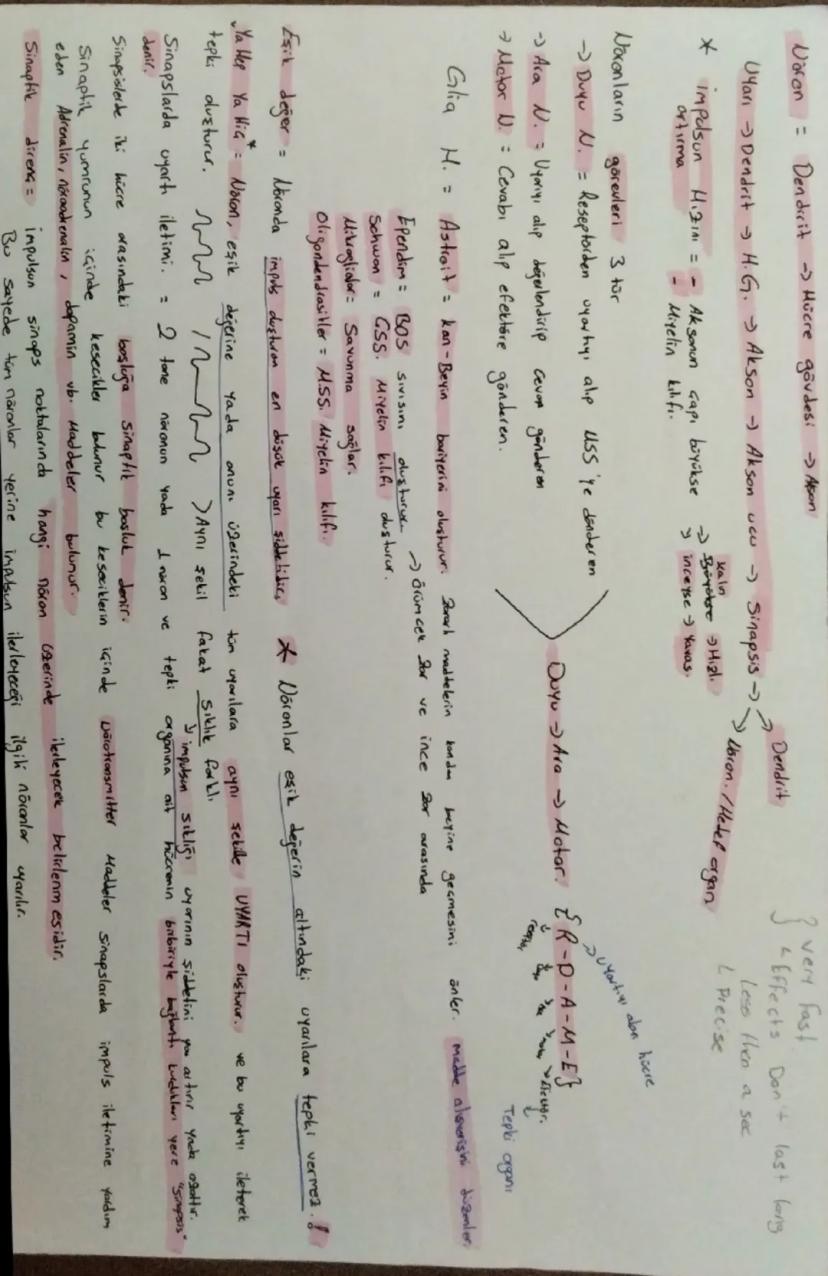 Nöron = Dendirit → Hücre gövdesi → Akson
Uyarı → Dendrit → H.G. → Akson → Akson ucu → Sinapsis → Dendrit
↘ Nöron. / Hedef organ
} very fast
Effects Don't last long
Less then a sec
Precise
* impulsun Hızını artırma = - Aksonun çapı büyükse → kalın → Hızlı.
↘ inceyse → Yavaş.
- Miyelin kılıfı.
Nöronların görevleri 3 tür
→ Duyu N. = Reseptörden uyartıyı alıp MSS 'ye gönderen
→ Ara N. = Uyarıyı alıp değerlendirip cevap gönderen
→ Motor N. = Cevabı alıp efektöre gönderen.
Duyu → Ara → Motor. {R-D-A-M-E}
uyartıyı alan hücre
Tepki organı
Glia H. = Astrait = kan-Beyin bariyerini oluşturur. Zararlı maddelerin kandan beyine geçmesini önler. Madde alışverişini düzenler.
Ependim = BOS sıvısını oluşturur. → Örümcek zar ve ince zar arasında
Schwan = ÇSS. Miyelin kılıfı oluşturur.
Mikroglialar = Savunma sağlar.
Oligondendrasitler = MSS. Miyelin kılıfı.
Eşik değer = Nöronda impuls oluşturan en düşük uyarı şiddetidir. * Nöronlar eşik değerin altındaki uyarılara tepki vermez. !
"Ya Hep Ya Hiç" = Nöron, eşik değerine yada onun üzerindeki tüm uyarılara aynı şekilde UYARTI oluşturur. ve bu uyartıyı ileterek
tepki oluşturur. > Aynı şekil fakat sıklık farklı
impulsun sıklığı uyarının şiddetini ya artırır yada azaltır.
Sinapslarda uyartı iletimi. = 2 tane nöronun yada 1 nöron ve tepki organına ait hücrenin birbiriyle bağlantı kurdukları yere "sinapsis"
denir.
Sinapsislerde iki hücre arasındaki boşluğa sinaptik boşluk denir.
Sinaptik yumrunun içinde kesecikler bulunur bu keseciklerin içinde Nörotransmitter Maddeler sinapslarda impuls iletimine yardım
eden Adrenalin, nöroadrenalin, dopamin vb. Maddeler bulunur.
Sinaptik direnç = impulsun sinaps noktalarında hangi nöron üzerinde ilerleyecek belirlenm esidir.
Bu sayede tüm nöronlar yerine impulsun ilerleyeceği ilgili nöronlar uyarılır.